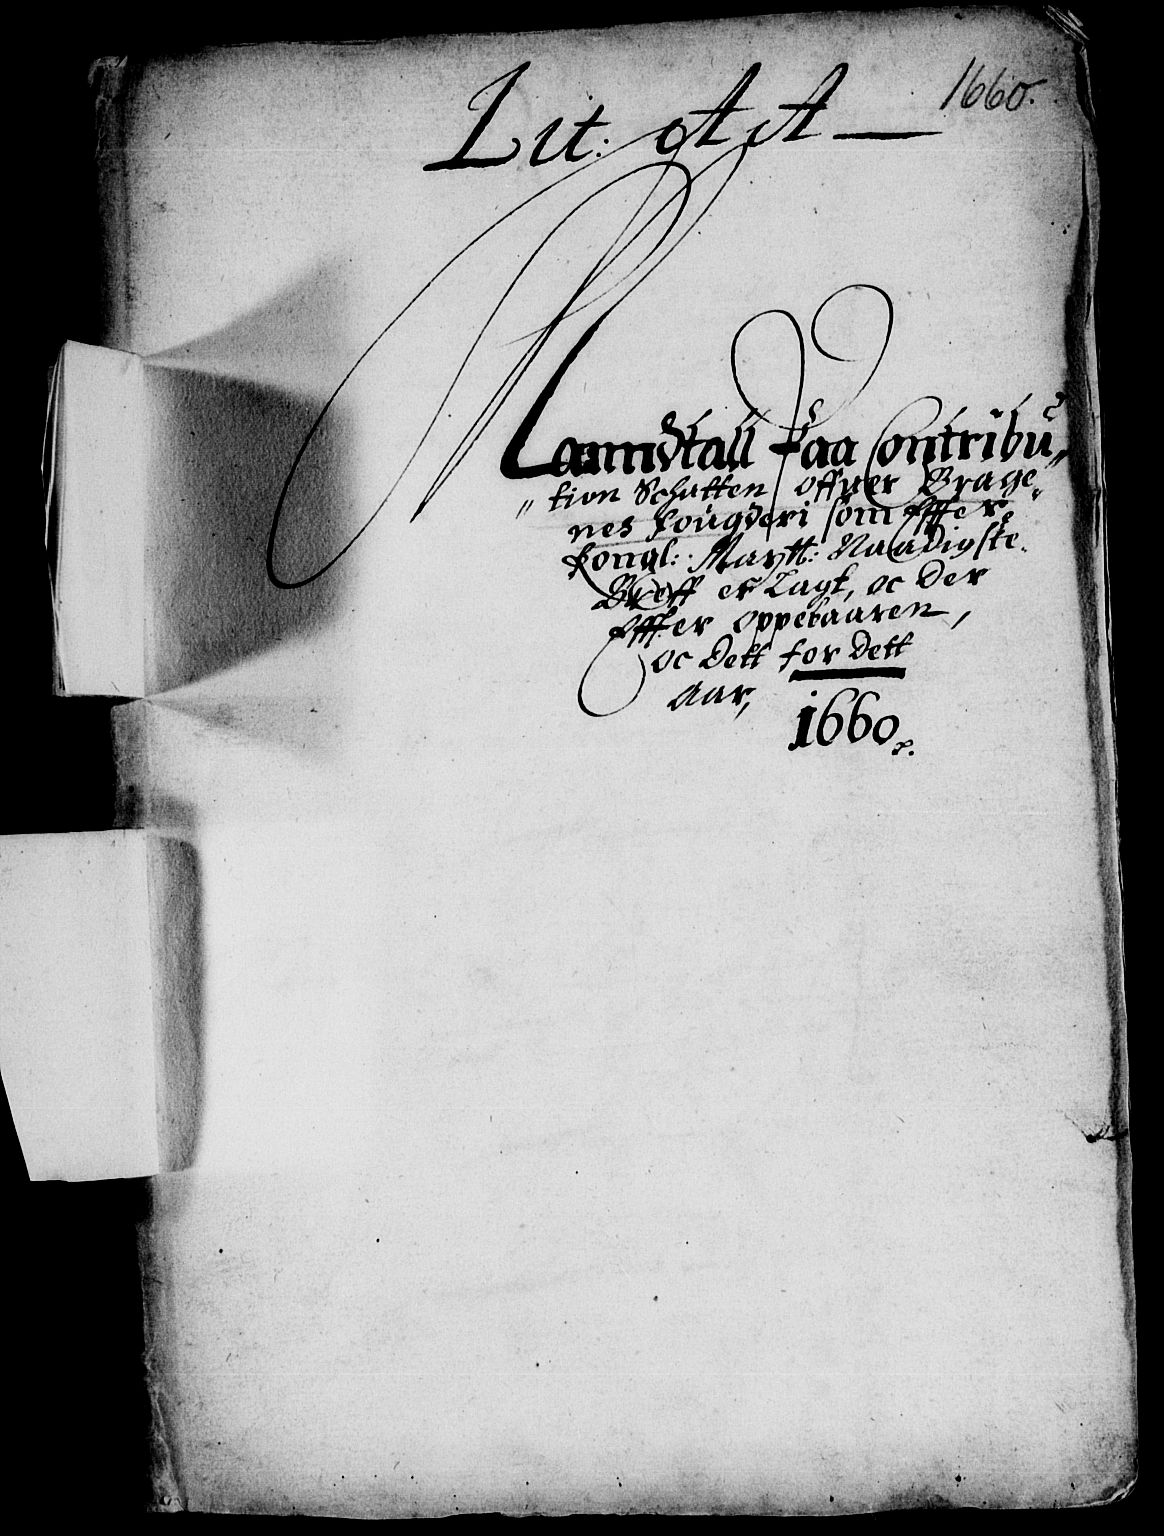 Lit: A A — 1660.
Manndtall Paa Contribu„
„tion Schatten offuer Brage„
nes fougderi som Effter
Kongl: Maytt: Naadigste
Breff er Lagt, oc der
Effter oppebaaren,
oc dett for dett
aar,
1660